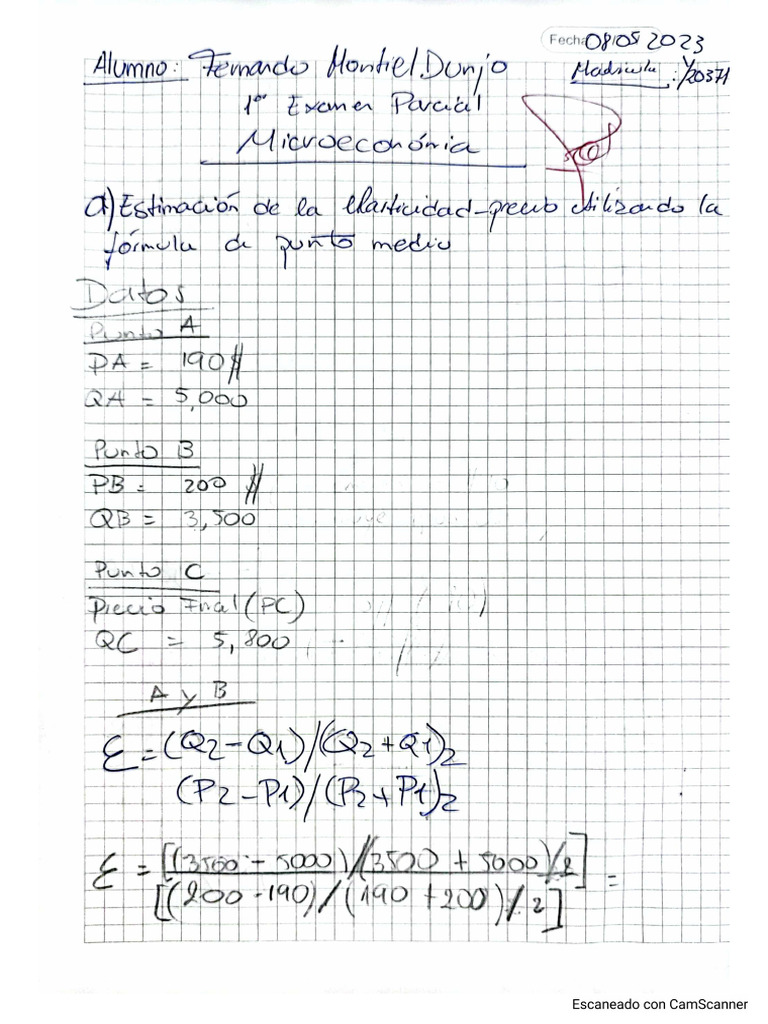 Fecha 08/05/2023
Alumno: Fernando Montiel Dunjo
Madricula: 120371
1er Examen Parcial
Microeconómia
a) Estimación de la elasticidad-precio utilizando la
fórmula de punto medio
Datos
Punto A
PA = 190 $
QA = 5,000
Punto B
PB = 200 $
QB = 3,500
Punto C
Precio Final (PC)
QC = 5,800
A y B
ε = (Q2-Q1)/(Q2+Q1)2
(P2-P1)/(P2+P1)2
ε = [(3500 - 5000)/(3500 + 5000)/2] =
[(200-190)/(190+200)/2]
Escaneado con CamScanner